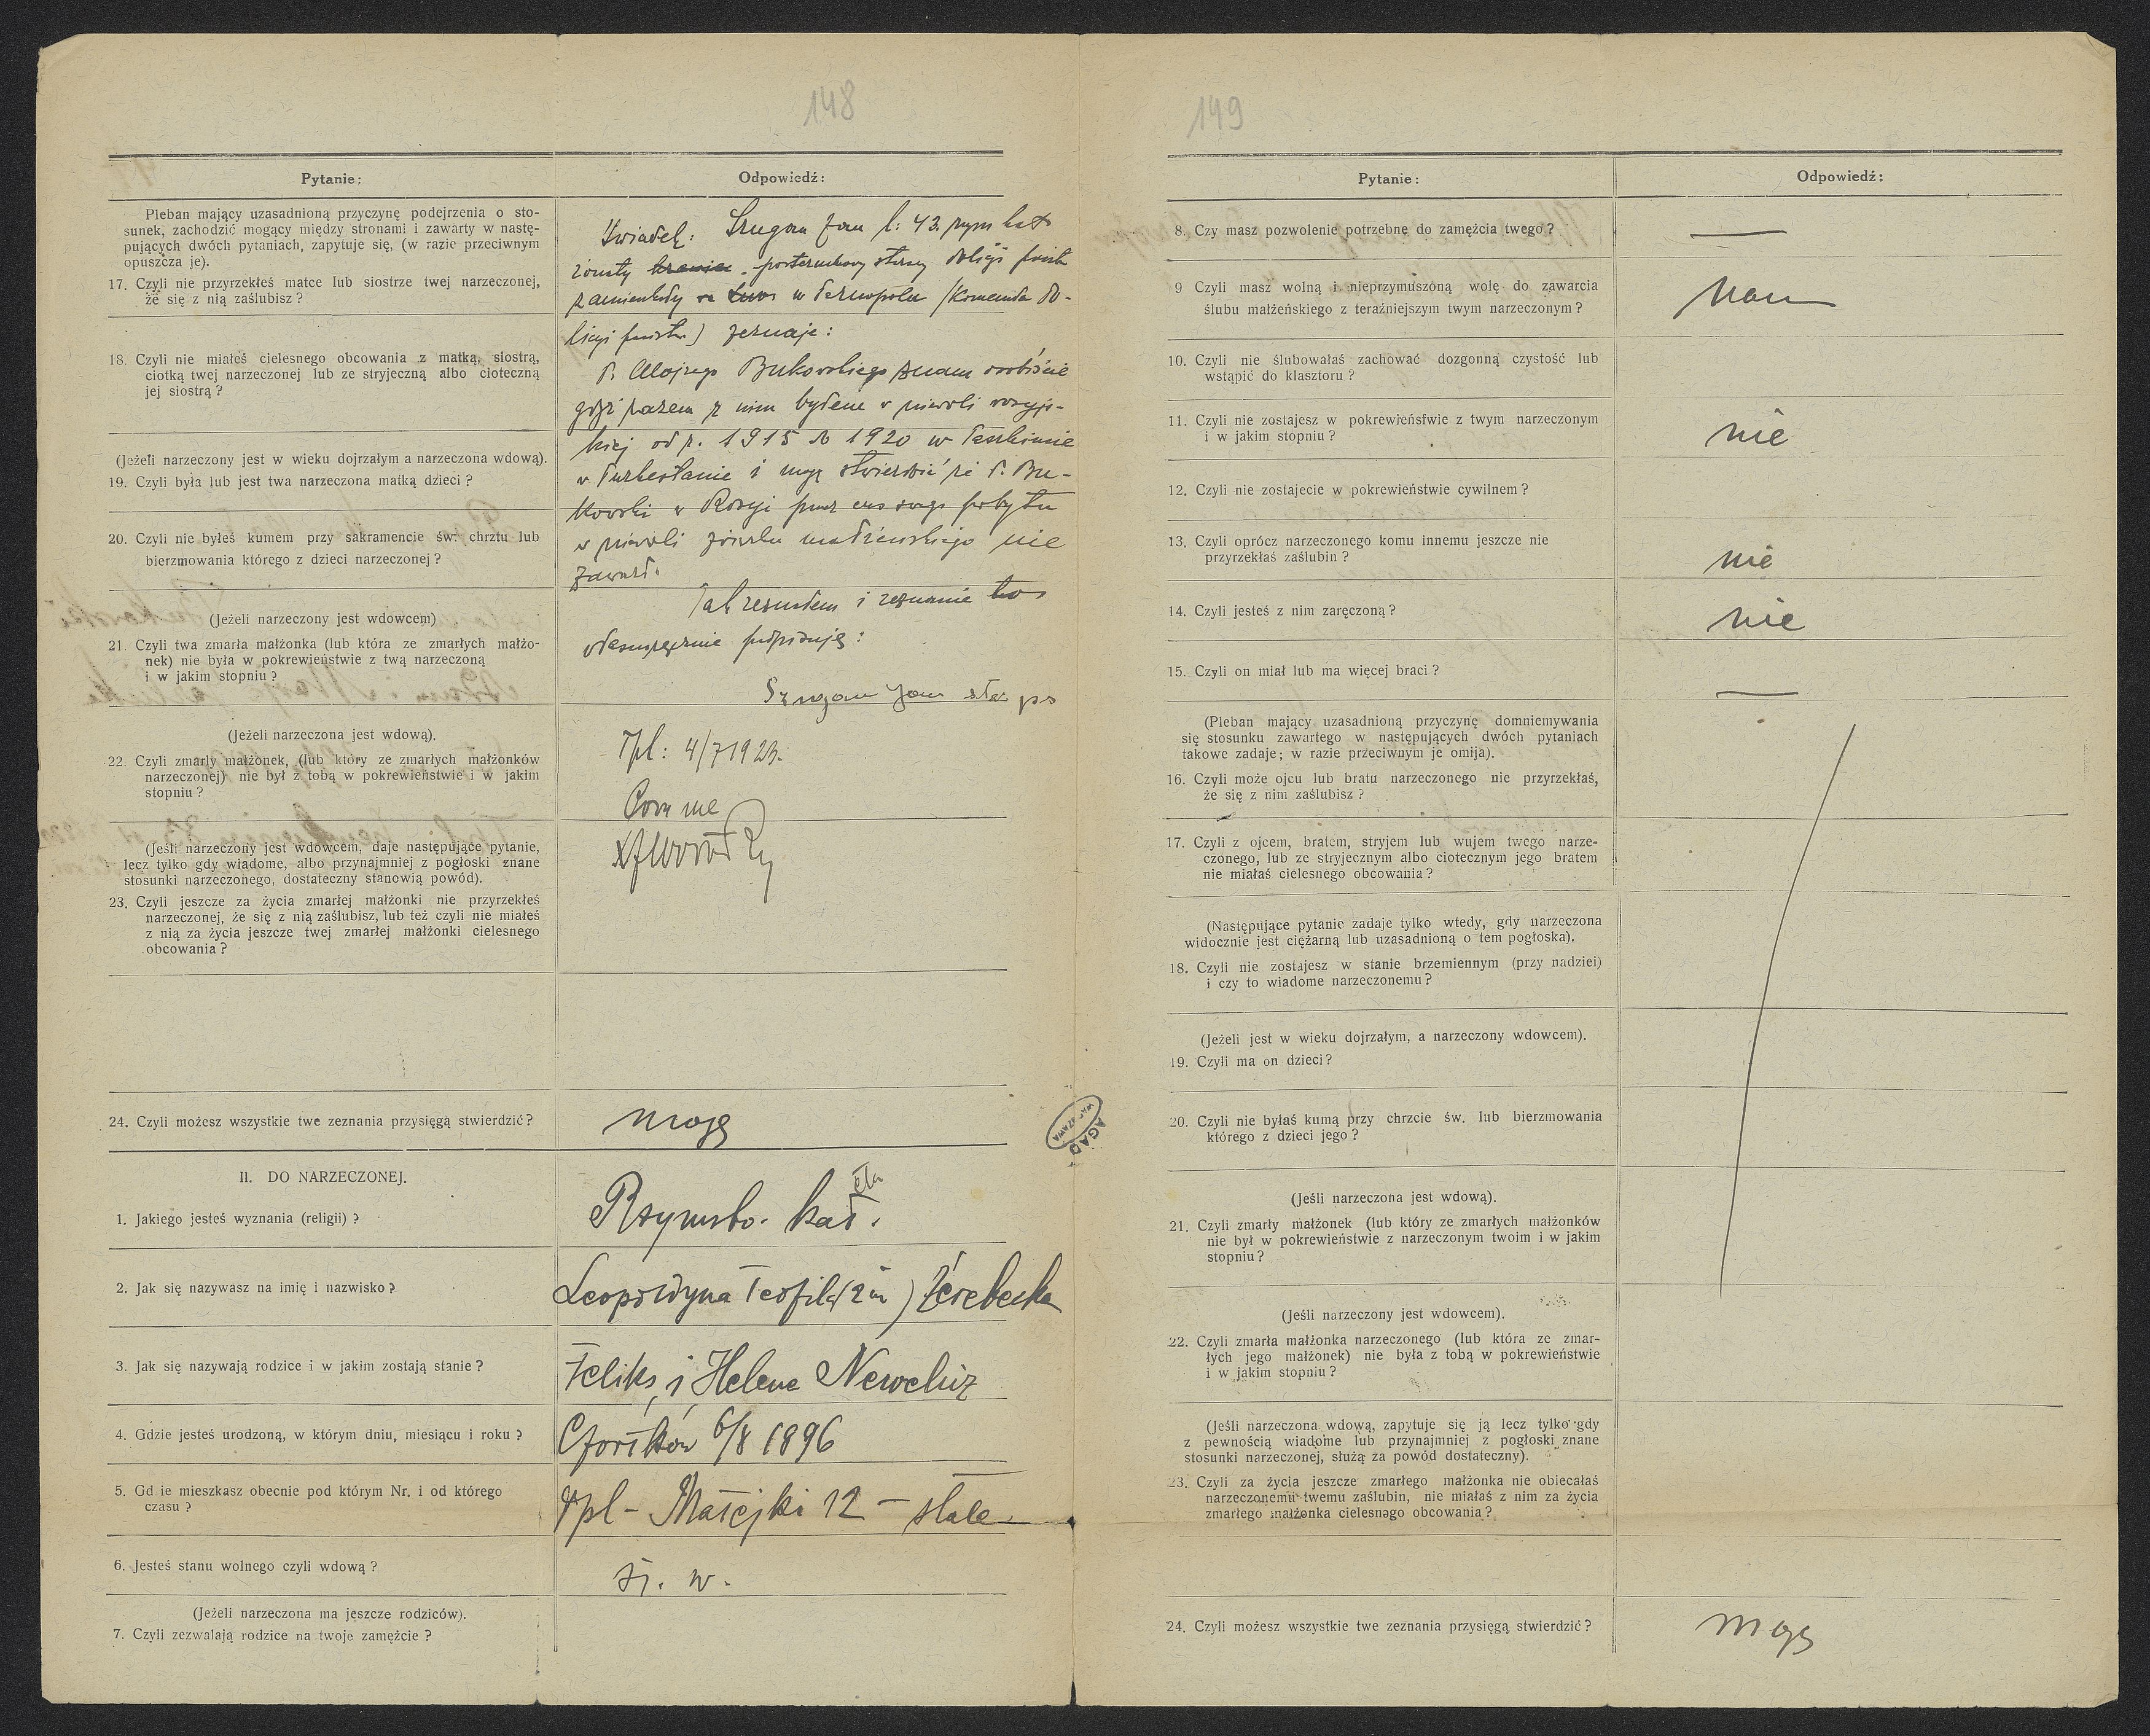 148
Pytanie:
Odpowiedź:
Pleban mający uzasadnioną przyczynę podejrzenia o sto-
sunek, zachodzić mogący między stronami i zawarty w nastę-
pujących dwóch pytaniach, zapytuje się, (w razie przeciwnym
opuszcza je).
17. Czyli nie przyrzekłeś matce lub siostrze twej narzeczonej,
że się z nią zaślubisz?
18. Czyli nie miałeś cielesnego obcowania z matką, siostrą,
ciotką twej narzeczonej lub ze stryjeczną albo cioteczną
jej siostrą?
(Jeżeli narzeczony jest w wieku dojrzałym a narzeczona wdową).
19. Czyli była lub jest twa narzeczona matką dzieci?
20. Czyli nie byłeś kumem przy sakramencie św. chrztu lub
bierzmowania którego z dzieci narzeczonej?
(Jeżeli narzeczony jest wdowcem)
21. Czyli twa zmarła małżonka (lub która ze zmarłych małżo-
nek) nie była w pokrewieństwie z twą narzeczoną
i w jakim stopniu?
(Jeżeli narzeczona jest wdową).
22. Czyli zmarły małżonek, (lub który ze zmarłych małżonków
narzeczonej) nie był z tobą w pokrewieństwie i w jakim
stopniu?
(Jeśli narzeczony jest wdowcem, daje następujące pytanie,
lecz tylko gdy wiadome, albo przynajmniej z pogłoski znane
stosunki narzeczonego, dostateczny stanowią powód).
23. Czyli jeszcze za życia zmarłej małżonki nie przyrzekłeś
narzeczonej, że się z nią zaślubisz, lub też czyli nie miałeś
z nią za życia jeszcze twej zmarłej małżonki cielesnego
obcowania?
Świadek: Szugan Jan l: 43. rzym kat
żonaty posterunkowy starszy policji państ
zamieszkały w Tarnopolu (Komenda Po-
licyi państw.) zeznaje:
P. Alojzego Bukowskiego znam osobiście
gdyż razem z nim byłem w niewoli rosyjs-
kiej od r. 1915 do 1920 w Taszkincie
w Turkestanie i mogę stwierdzić że P. Bu-
kowski w Rosyi przez czas swego pobytu
w niewoli związku małżeńskiego nie
zawarł.
Tak zeznałem i zeznanie to
własnoręcznie podpisuję:
Szugan Jan star ps
Tpl: 4/7 1923.
Coram me
24. Czyli możesz wszystkie twe zeznania przysięgą stwierdzić?
mogę
II. DO NARZECZONEJ.
1. Jakiego jesteś wyznania (religii)?
Rzymsko. kat.
2. Jak się nazywasz na imię i nazwisko?
Leopoldyna Teofila (2 im) Żerebecka
3. Jak się nazywają rodzice i w jakim zostają stanie?
Feliks i Helena Neweluz
4. Gdzie jesteś urodzoną, w którym dniu, miesiącu i roku?
Czortków 6/X 1896
5. Gd ie mieszkasz obecnie pod którym Nr. i od którego
czasu?
Tpl - Matejki 12 - stale
6. Jesteś stanu wolnego czyli wdową?
st. w.
(Jeżeli narzeczona ma jeszcze rodziców).
7. Czyli zezwalają rodzice na twoje zamężcie?
AGAD
WARSZAWA
149
Pytanie:
Odpowiedź:
8. Czy masz pozwolenie potrzebne do zamężcia twego?
—
9 Czyli masz wolną i nieprzymuszoną wolę do zawarcia
ślubu małżeńskiego z teraźniejszym twym narzeczonym?
mam
10. Czyli nie ślubowałaś zachować dozgonną czystość lub
wstąpić do klasztoru?
11. Czyli nie zostajesz w pokrewieństwie z twym narzeczonym
i w jakim stopniu?
nie
12. Czyli nie zostajecie w pokrewieństwie cywilnem?
13. Czyli oprócz narzeczonego komu innemu jeszcze nie
przyrzekłaś zaślubin?
nie
14. Czyli jesteś z nim zaręczoną?
nie
15. Czyli on miał lub ma więcej braci?
—
(Pleban mający uzasadnioną przyczynę domniemywania
się stosunku zawartego w następujących dwóch pytaniach
takowe zadaje; w razie przeciwnym je omija).
16. Czyli może ojcu lub bratu narzeczonego nie przyrzekłaś,
że się z nim zaślubisz?
17. Czyli z ojcem, bratem, stryjem lub wujem twego narze-
czonego, lub ze stryjecznym albo ciotecznym jego bratem
nie miałaś cielesnego obcowania?
(Następujące pytanie zadaje tylko wtedy, gdy narzeczona
widocznie jest ciężarną lub uzasadnioną o tem pogłoska).
18. Czyli nie zostajesz w stanie brzemiennym (przy nadziei)
i czy to wiadome narzeczonemu?
(Jeżeli jest w wieku dojrzałym, a narzeczony wdowcem).
19. Czyli ma on dzieci?
20. Czyli nie byłaś kumą przy chrzcie św. lub bierzmowania
którego z dzieci jego?
(Jeśli narzeczona jest wdową).
21. Czyli zmarły małżonek (lub który ze zmarłych małżonków
nie był w pokrewieństwie z narzeczonym twoim i w jakim
stopniu?
(Jeśli narzeczony jest wdowcem).
22. Czyli zmarła małżonka narzeczonego (lub która ze zmar-
łych jego małżonek) nie była z tobą w pokrewieństwie
i w jakim stopniu?
(Jeśli narzeczona wdową, zapytuje się ją lecz tylko gdy
z pewnością wiadome lub przynajmniej z pogłoski znane
stosunki narzeczonej, służą za powód dostateczny).
23. Czyli za życia jeszcze zmarłego małżonka nie obiecałaś
narzeczonemu twemu zaślubin, nie miałaś z nim za życia
zmarłego małżonka cielesnego obcowania?
24. Czyli możesz wszystkie twe zeznania przysięgą stwierdzić?
mogę